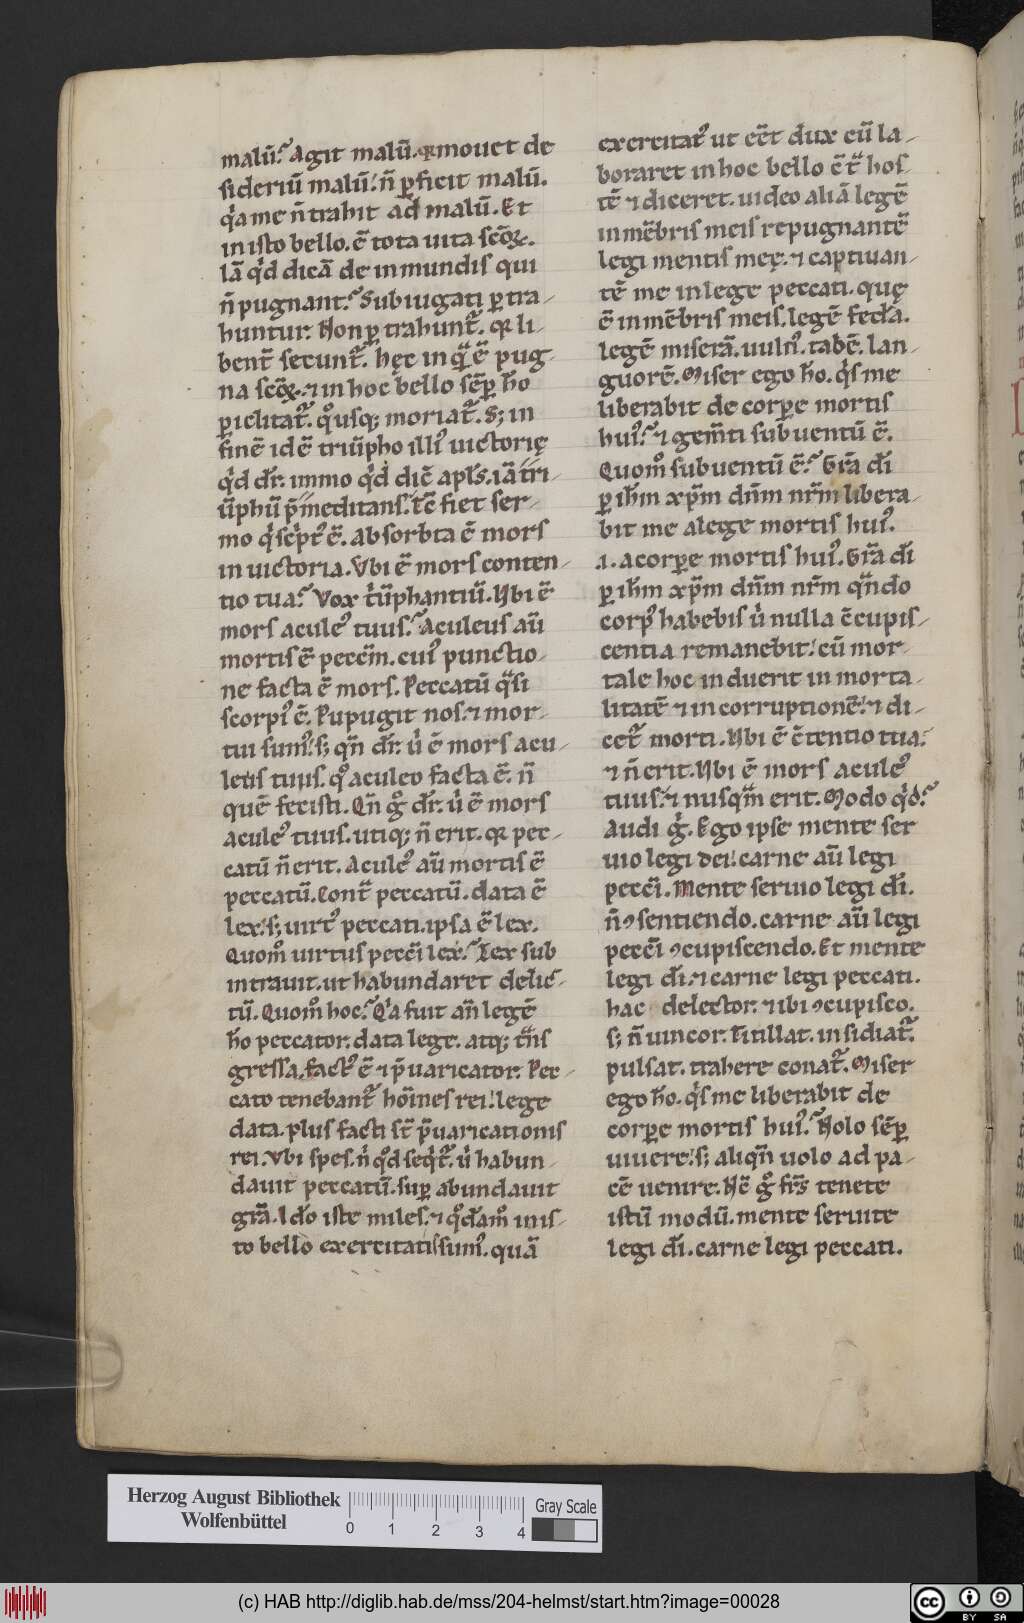 malū. Agit malū. qꝛ mouet de
sideriū malū. n̄ ꝑficit malū.
q̇a me n̄ trahit ad malū. Et
in isto bello. ē tota uita scōꝝ.
Iā q̇d dicā de inmundis qui
n̄ pugnant. Subiugati ꝑ tra-
huntur. Non ꝑ trahunt᷑. qꝛ li-
bent᷑ secunt᷑. hęc inq̄ ē pug-
na scōꝝ. ⁊ in hoc bello sēꝑ hō
ꝑiclitat᷑. qͦusqꝫ moriat᷑. Sꝫ in
finē id ē triūpho illiꝰ uictorię
q̇d dr̄. immo q̇d dic̄ apl̄s. iā tri-
ūphū p̄meditans. tc̄ fiet ser-
mo q̇ sc̄ptꝰ ē. absorbta ē mors
in uictoria. Vbi ē mors conten-
tio tua. Vox ṫūphantiū. Vbi ē
mors aculeꝰ tuus. Aculeus aū
mortis ē pecc̄m. cuiꝰ punctio-
ne facta ē mors. Peccatū q̄si
scorpiꝰ ē. Pupugit nos. ⁊ mor-
tui sumꝰ. sꝫ qn̄ dr̄. u̇ ē mors acu-
leus tuus. qͦ aculeo facta ē. n̄
quē fecisti. Qn̄ gͦ dr̄. u̇ ē mors
aculeꝰ tuus. utiqꝫ n̄ erit. qꝛ pec-
catū n̄ erit. Aculeꝰ aū mortis ē
peccatū. Contᷓ peccatū. data ē
lex. sꝫ uirtꝰ peccati. ipsa ē lex.
Quomͦ uirtus pecc̄i lex. Lex sub
intrauit. ut habundaret delic-
tū. Quomͦ hoc. Q̇a fuit an̄ legē
hō peccator. data lege. atqꝫ tᷓns
gressa. factꝰ ē ⁊ p̄uaricator. Pec-
cato tenebant᷑ hōines rei. lege
data. plus facti st̄ p̄uaricationis
rei. Vbi spes. n̄ qͦd seq̇t᷑. u̇ habun-
dauit peccatū. suꝑ abundauit
grā. Ido iste miles. ⁊ qͦdāmͦ in is-
to bello exercitatissimꝰ. quā
exercitatꝰ ut eēt dux cū la-
boraret in hoc bello c̄tᷓ hos-
tē ⁊ diceret. uideo aliā legē
in mēbris meis repugnantē
legi mentis meę. ⁊ captiuan-
tē me in lege peccati. quę
ē in mēbris meis. legē fedā.
legē miserā. uulnꝰ. tabē. lan-
guorē. Miser ego hō. q̇s me
liberabit de corꝑe mortis
huiꝰ. ⁊ gem̄ti subuentū ē.
Quomͦ subuentū ē. Grā dī
ꝑ ih̄m xp̄m dn̄m nr̄m libera-
bit me a lege mortis huiꝰ.
.i. a corꝑe mortis huiꝰ. Grā dī
ꝑ ih̄m xp̄m dn̄m nr̄m q̄ndo
corpꝰ habebis u̇ nulla c̄cupis-
centia remanebit. cū mor-
tale hoc induerit in morta-
litatē ⁊ in corruptionē. ⁊ di-
cet᷑ morti. Vbi ē c̄tentio tua.
⁊ n̄ erit. Vbi ē mors aculeꝰ
tuus. ⁊ nusqᷓm erit. Modo q̇d.
Audi g̊. Ego ipse mente ser
uio legi dei. carne aū legi
pecc̄i. Mente seruio legi dī.
n̄ ꝯsentiendo. carne aū legi
pecc̄i ꝯcupiscendo. Et mente
legi dī. ⁊ carne legi peccati.
hac delector. ⁊ ibi ꝯcupisco.
sꝫ n̄ uincor. Titillat. insidiat᷑.
pulsat. trahere conat᷑. Miser
ego hō. q̇s me liberabit de
corꝑe mortis huiꝰ. Nolo sēꝑ
uiuere. sꝫ aliqn̄ uolo ad pa-
cē uenire. Hc̄ gͦ frs̄ tenete
istū modū. mente seruite
legi dī. carne legi peccati.
Herzog August Bibliothek
Wolfenbüttel
0 1 2 3 4
Gray Scale
(c) HAB http://diglib.hab.de/mss/204-helmst/start.htm?image=00028
cc BY SA